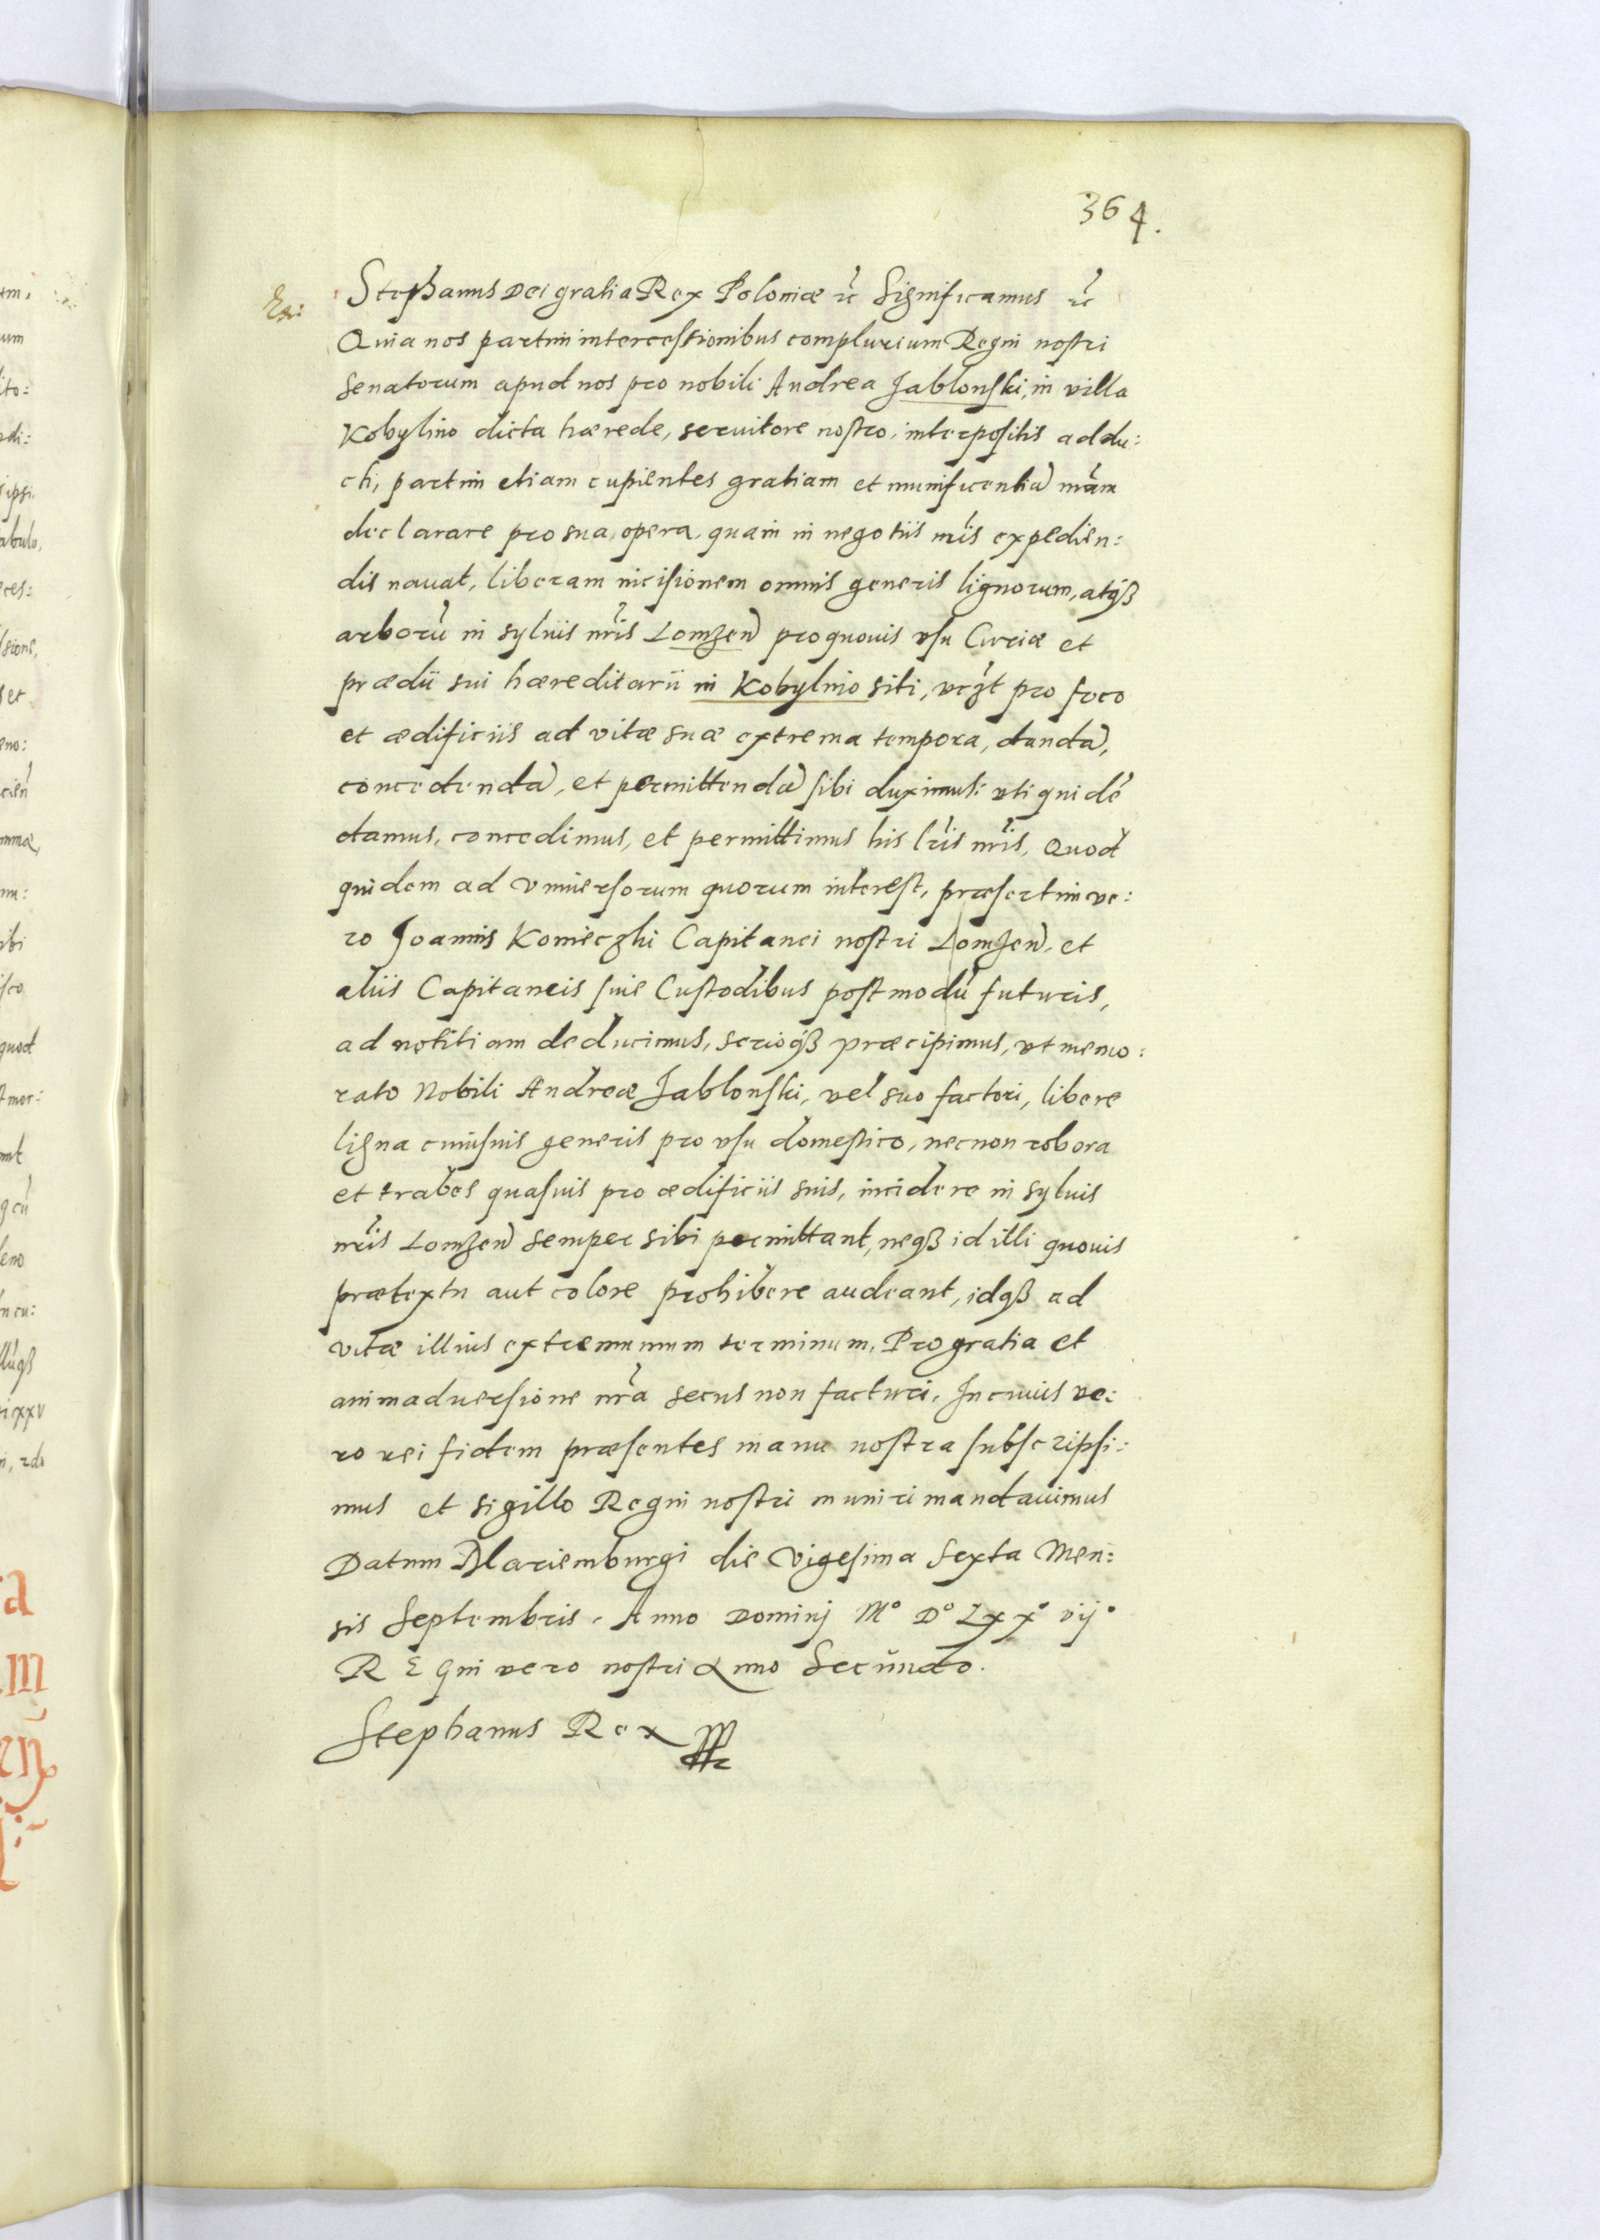 364.
Ex:
Stephanus Dei gratia Rex Poloniæ rc̃ Significamus rc̃
Quia nos partim intercessionibus complurium Regni nostri
Senatorum apud nos pro nobili Andrea Jablonski, in villa
Kobylino dicta hærede, seruitore nostro, interpositis addu:
cti, partim etiam cupientes gratiam et munificentiã nr̃am
declarare pro sua opera, quam in negotiis nr̃is expedien:
dis nauat, liberam incisionem omnis generis lignorum, atqȝ
arborũ in syluis nr̃is Lomzeñ pro quouis vsu Curiæ et
prædii sui hæreditarii in Kobylino siti, vcz̃t pro foco
et ædificiis ad vitæ suæ extrema tempora, dandã,
concedendã, et permittendã sibi duximus: uti quidẽ
damus, concedimus, et permittimus his lr̃is nr̃is, Quod
quidem ad vniuersorum quorum interest, præsertim ve:
ro Joannis Konieczki Capitanei nostri Lomzeñ, et
aliis Capitaneis siue Custodibus postmodũ futuris,
ad notitiam deducimus, serioqȝ præcipimus, vt memo:
rato Nobili Andreæ Jablonski, vel suo factori, libere
ligna cuiusuis generis pro vsu domestico, necnon robora
et trabes quasuis pro ædificiis suis, incidere in syluis
nr̃is Lomzeñ semper sibi permittant, neqȝ id illi quouis
prætextu aut colore prohibere audeant, idqȝ ad
vitæ illius extremum terminum, Pro gratia et
animaduersione nr̃a secus non facturi, In cuius ve:
ro rei fidem præsentes manu nostra subscripsi:
mus et sigillo Regni nostri muniri mandauimus
Datum Mariemburgi die Vigesima Sexta Men:
sis Septembris, Anno Dominj M° D° Lxx° vij°
REGni vero nostri Anno Secundo.
Stephanus Rex